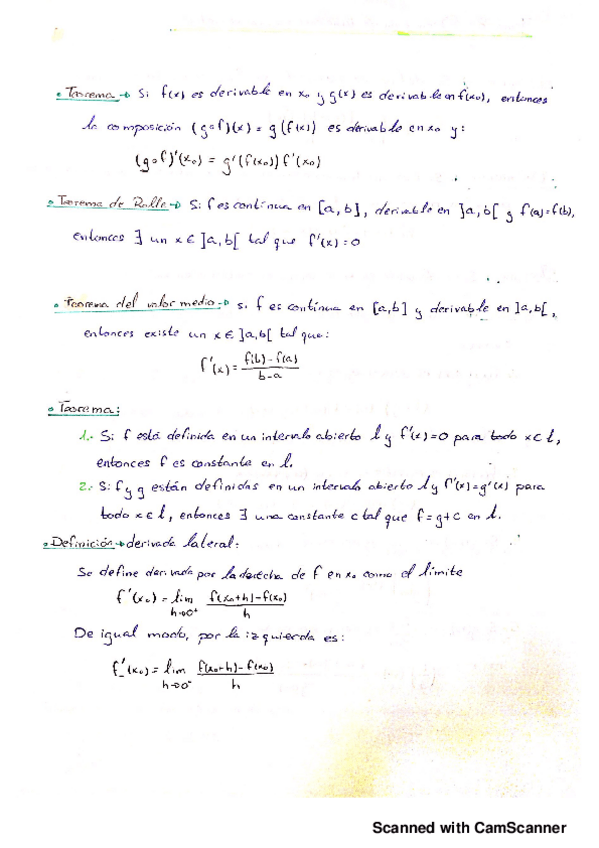 • Teorema → Si f(x) es derivable en x₀ y g(x) es derivable en f(x₀), entonces
la composición (g∘f)(x) = g(f(x)) es derivable en x₀ y:
(g∘f)'(x₀) = g'(f(x₀)) f'(x₀)
• Teorema de Rolle → Si f es continua en [a,b], derivable en ]a,b[ y f(a)=f(b),
entonces ∃ un x ∈ ]a,b[ tal que f'(x)=0
• Teorema del valor medio → si f es continua en [a,b] y derivable en ]a,b[,
entonces existe un x ∈ ]a,b[ tal que:
f'(x) = f(b)-f(a) / b-a
• Teorema:
1.- Si f está definida en un intervalo abierto l y f'(x)=0 para todo x ∈ l,
entonces f es constante en l.
2.- Si f y g están definidas en un intervalo abierto l y f'(x)=g'(x) para
todo x ∈ l, entonces ∃ una constante c tal que f=g+c en l.
• Definición → derivada lateral:
Se define derivada por la derecha de f en x₀ como el límite
f'(x₀) = lim h→0⁺ f(x₀+h)-f(x₀) / h
De igual modo, por la izquierda es:
f'₋(x₀) = lim h→0⁻ f(x₀+h)-f(x₀) / h
Scanned with CamScanner